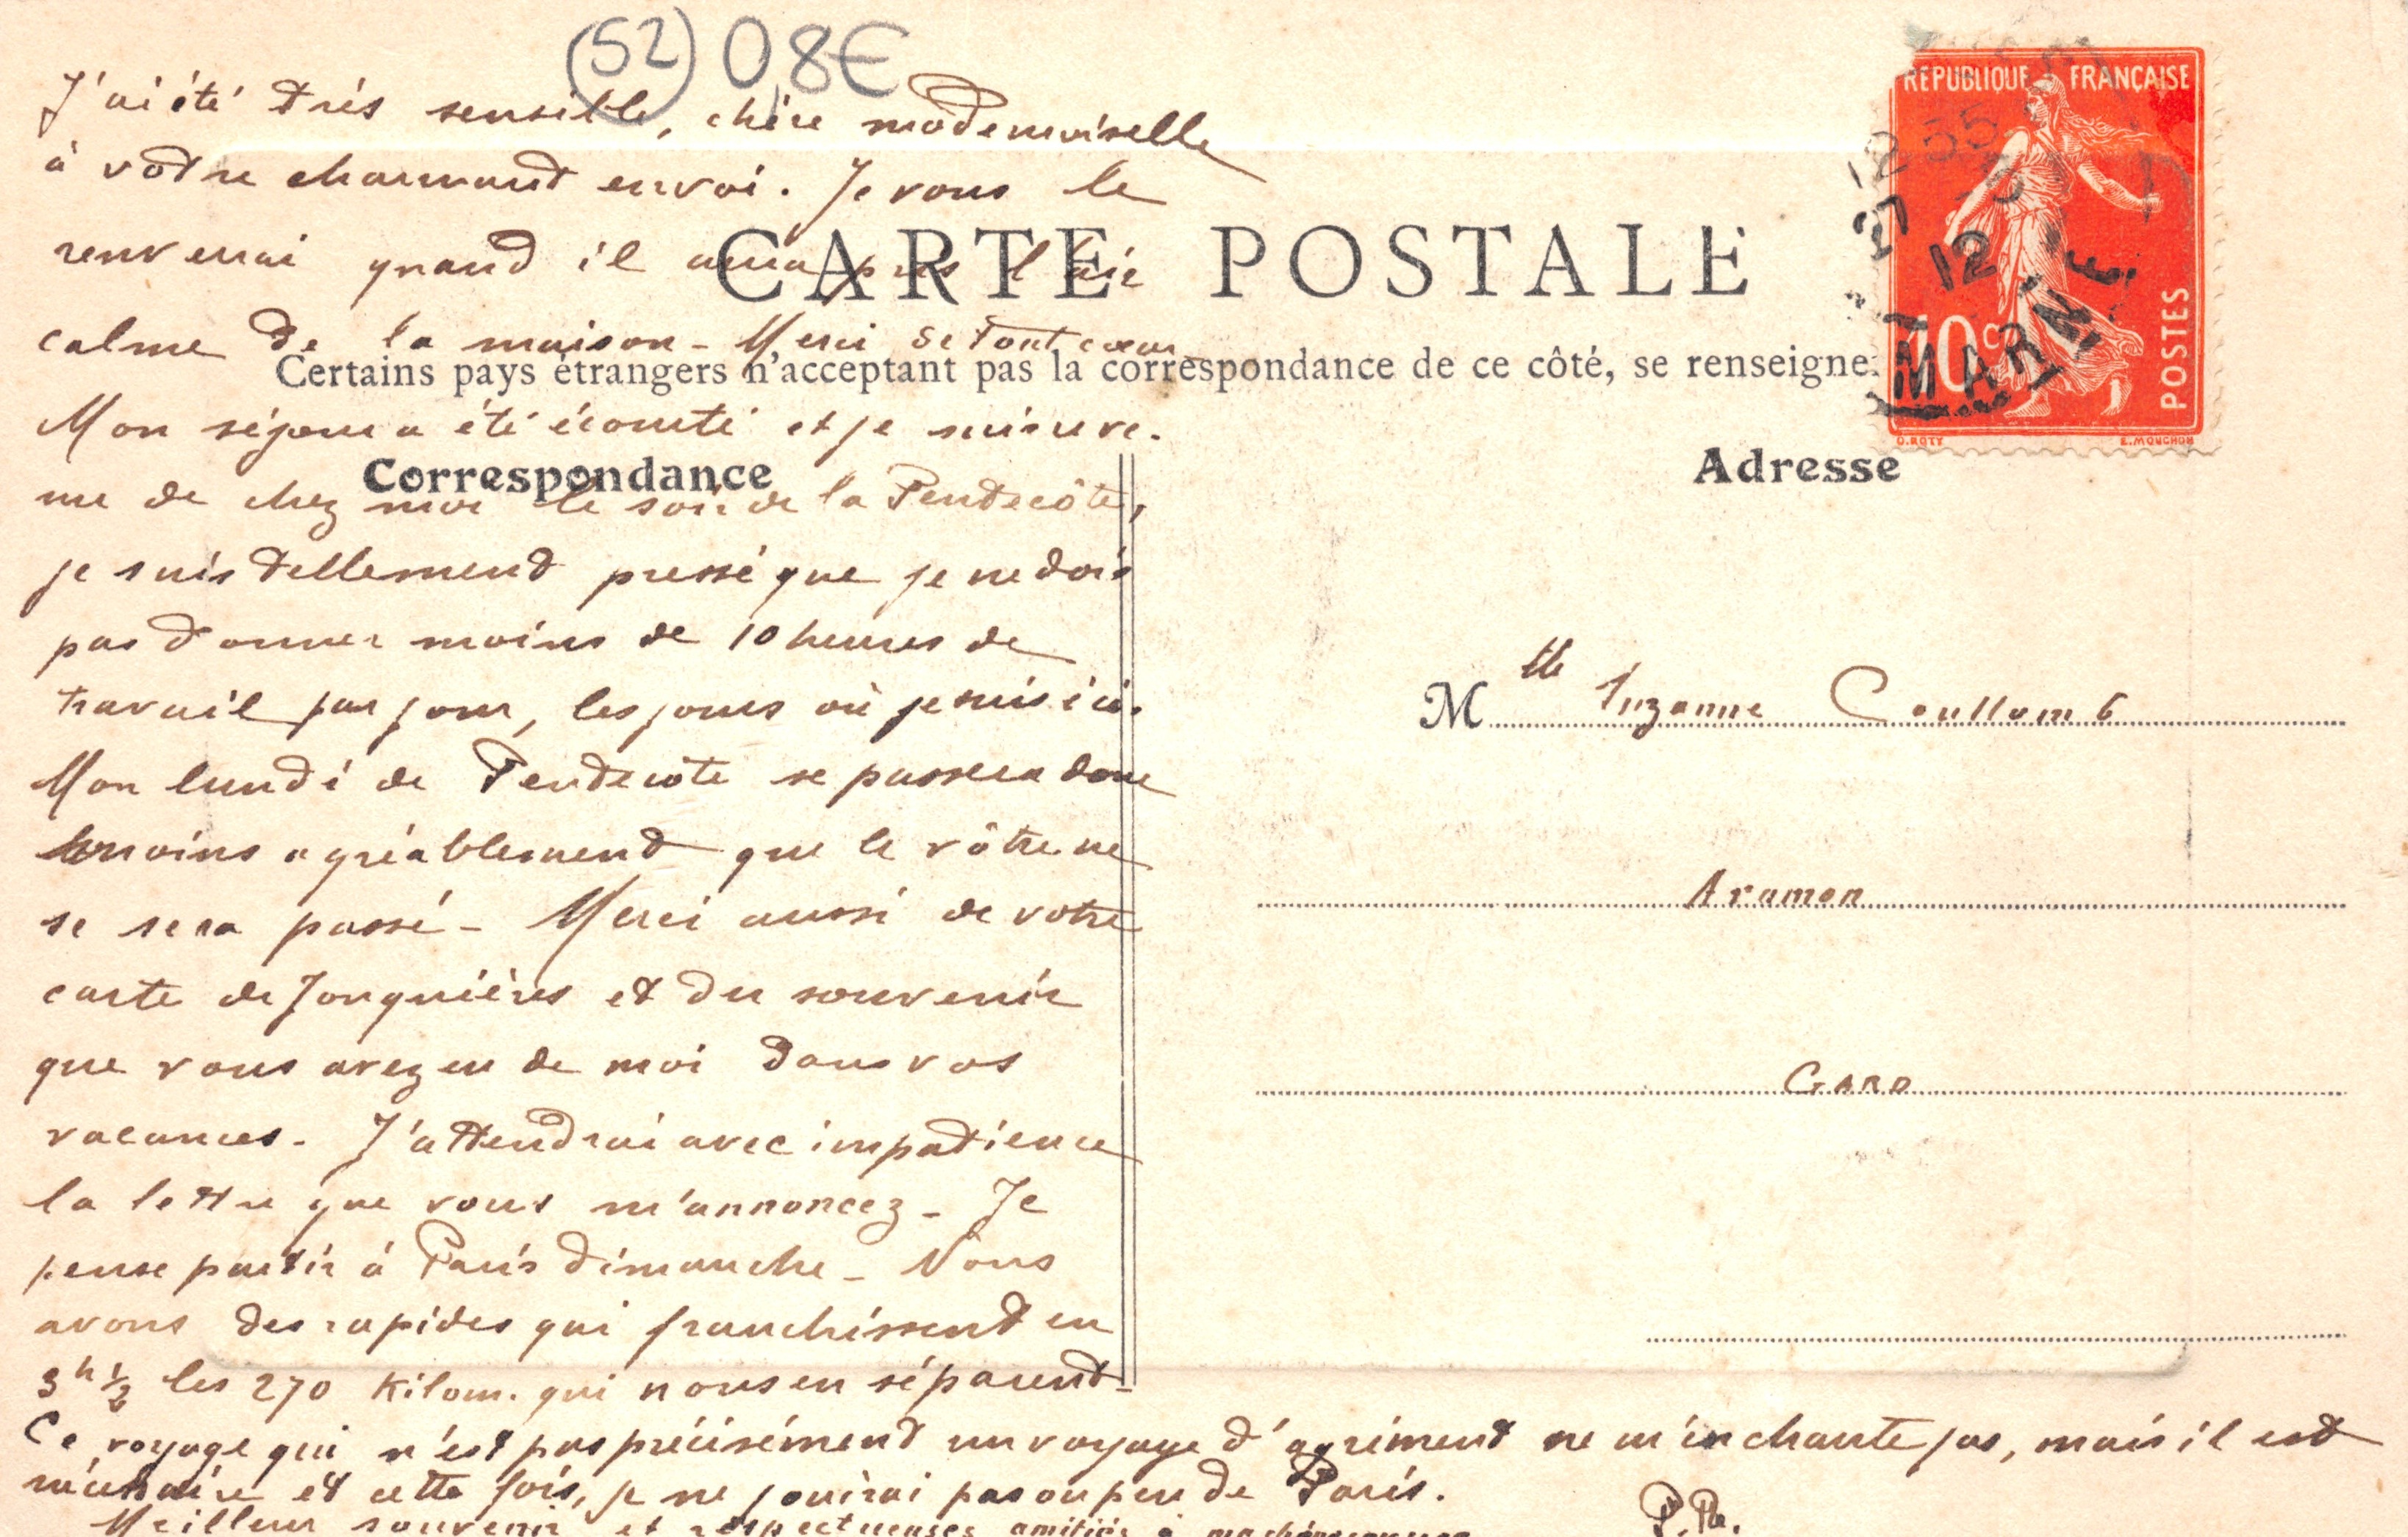 (52) 0,8€
J'ai été très sensible, chère mademoiselle
à votre charmant envoi. Je vous le
renverrai quand il aura pris l'air
calme de la maison - Merci de tout cœur
Mon séjour a été écourté et je
me de chez moi le soir de la Pentecôte,
je suis tellement pressé que je ne dois
pas donner moins de 10 heures de
travail par jour, les jours où je suis ici.
Mon lundi de Pentecôte se passera donc
moins agréablement que le vôtre ne
se sera passé - Merci aussi de votre
carte de Jonquières et du souvenir
que vous avez eu de moi dans vos
vacances - J'attendrai avec impatience
la lettre que vous m'annoncez - Je
pense partir à Paris dimanche - Nous
avons des rapides qui franchissent en
3h ½ les 270 Kilom. qui nous en séparent -
Ce voyage qui n'est pas précisément un voyage d'agrément ne m'enchante pas, mais il est
nécessaire et cette fois, je ne jouirai pas ou peu de Paris.
Meilleur souvenir et respectueuses amitiés à
P.R.
CARTE POSTALE
Certains pays étrangers n'acceptant pas la correspondance de ce côté, se renseigne
Correspondance
Adresse
Mlle Suzanne Coullomb
Aramon
GARD
REPUBLIQUE FRANÇAISE
10c
POSTES
O.ROTY
E.MOUCHON
12
MARNE